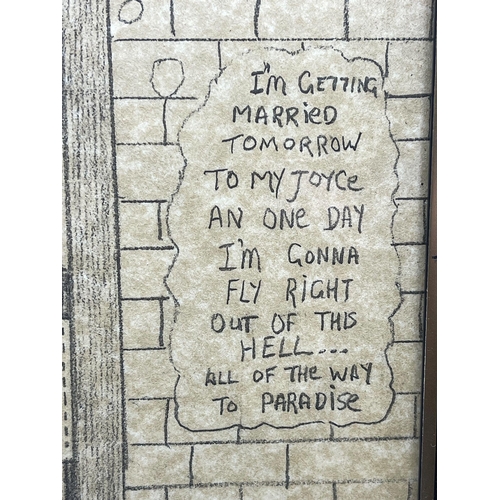 I'M GETTING
MARRIED
TOMORROW
TO MY JOYCE
AN ONE DAY
I'M GONNA
FLY RIGHT
OUT OF THIS
HELL....
ALL OF THE WAY
TO PARADISE